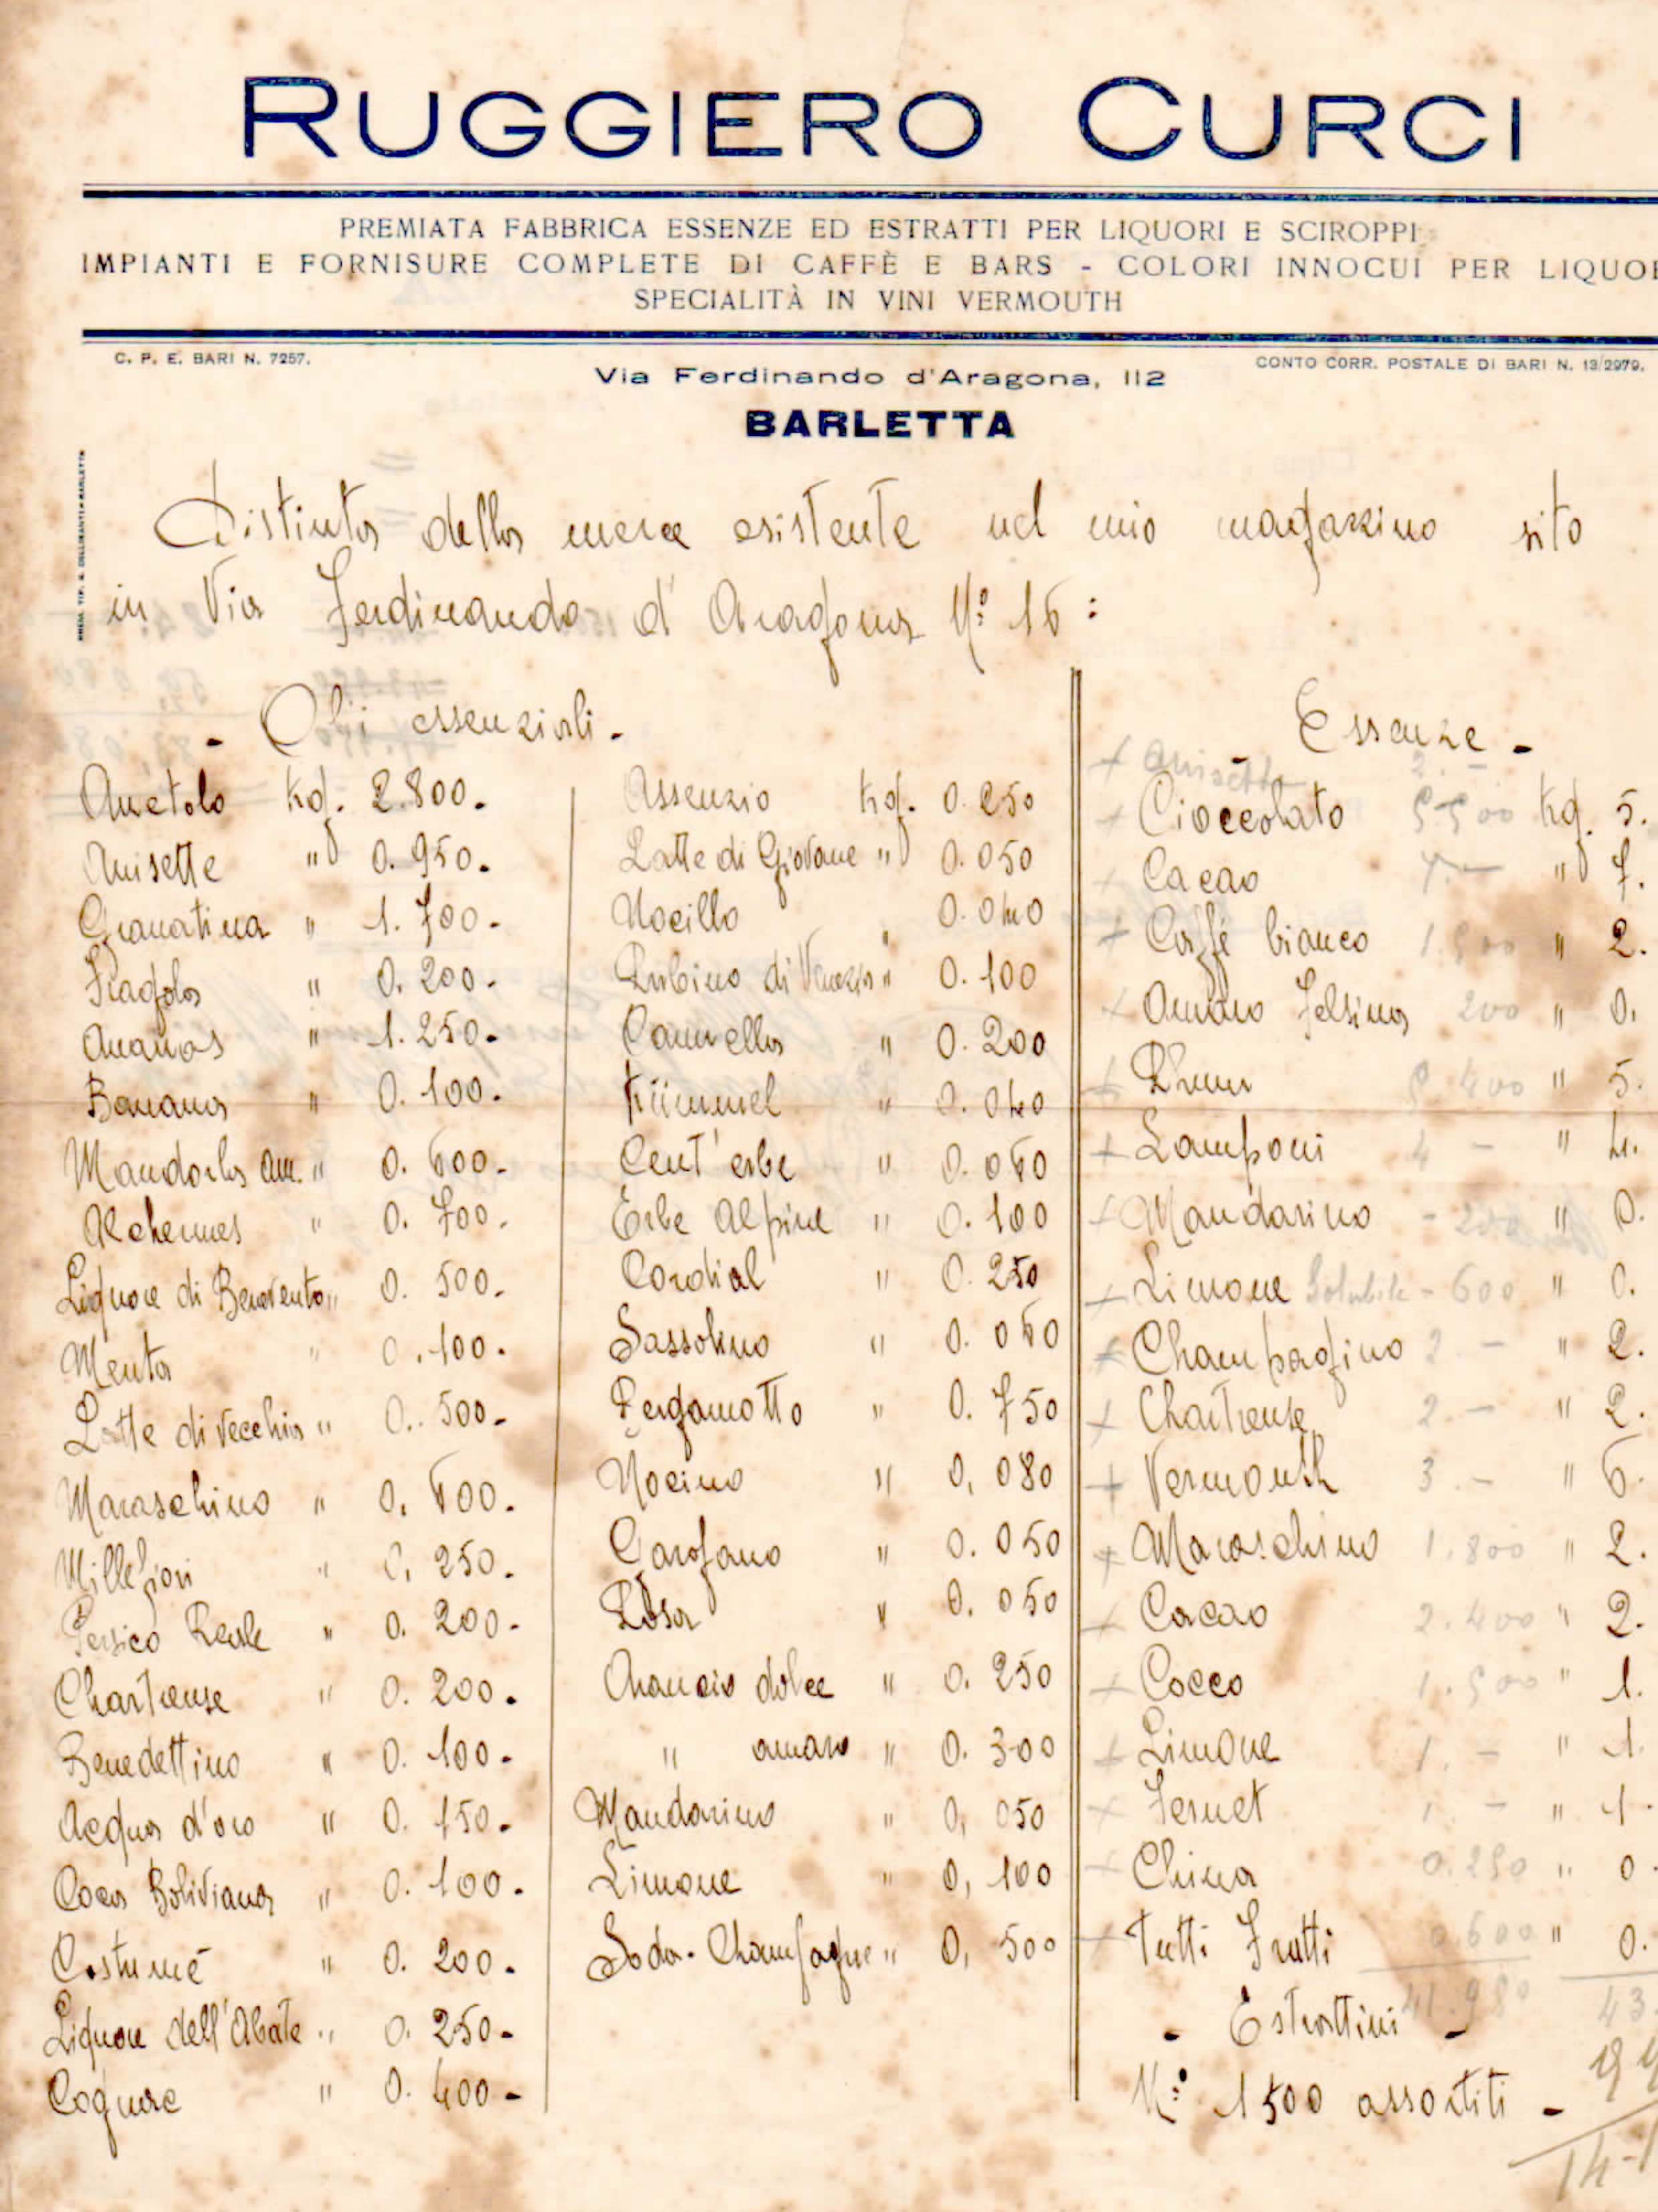 RUGGIERO CURCI
PREMIATA FABBRICA ESSENZE ED ESTRATTI PER LIQUORI E SCIROPPI
IMPIANTI E FORNISURE COMPLETE DI CAFFÈ E BARS - COLORI INNOCUI PER LIQUO
SPECIALITÀ IN VINI VERMOUTH
C. P. E. BARI N. 7257.
CONTO CORR. POSTALE DI BARI N. 13/2979.
Via Ferdinando d'Aragona, 112
BARLETTA
Distinta della merce esistente nel mio magazzino sito
in Via Ferdinando d'Aragona N.° 16:
- Olii essenziali -
Anetolo Kg. 2.800.
Anisette " 0.950.
Granatina " 1.700.
Fragola " 0.200.
Ananas " 1.250.
Banana " 0.100.
Mandorla am. " 0.600.
Alchermes " 0.700.
Liquore di Benevento " 0.500.
Menta " 0.100.
Latte di vecchia " 0.500.
Maraschino " 0.600.
Millefiori " 0.250.
Persico Reale " 0.200.
Chartreuse " 0.200.
Benedettino " 0.100.
Acqua d'oro " 0.150.
Coca Boliviana " 0.100.
Costumé " 0.200.
Liquore dell'Abate " 0.250.
Cognac " 0.400.
Assenzio Kg. 0.250
Latte di Giovane " 0.050
Nocillo " 0.040
Rubino di Venezia " 0.100
Cannella " 0.200
Kümmel " 0.040
Cent'erbe " 0.060
Erbe Alpine " 0.100
Cordial " 0.250
Sassolino " 0.060
Bergamotto " 0.750
Nocino " 0.080
Garofano " 0.050
Rosa " 0.050
Arancio dolce " 0.250
" amaro " 0.300
Mandarino " 0,050
Limone " 0,100
Soda-Champagne " 0,500
- Essenze -
+ Anisetta 2.-
+ Cioccolato 5.500 Kg. 5.
+ Cacao 7.- " 7.
+ Caffè bianco 1.900 " 2.
+ Amaro Felsina 200 " 0.
+ Rhum 5.400 " 5.
+ Lamponi 4 - " 4.
+ Mandarino - 200 " 0.
+ Limone Solubile - 600 " 0.
+ Champagino 2.- " 2.
+ Chartreuse 2.- " 2.
+ Vermouth 3.- " 6.
+ Maraschino 1.800 " 2.
+ Cacao 2.400 " 2.
+ Cocco 1.500 " 1.
+ Limone 1.- " 1.
+ Fernet 1.- " 1.
+ China 0.250 " 0.
+ Tutti Frutti 0.600 " 0.
41.980 43
- Estrattini -
N.° 1500 assortiti -